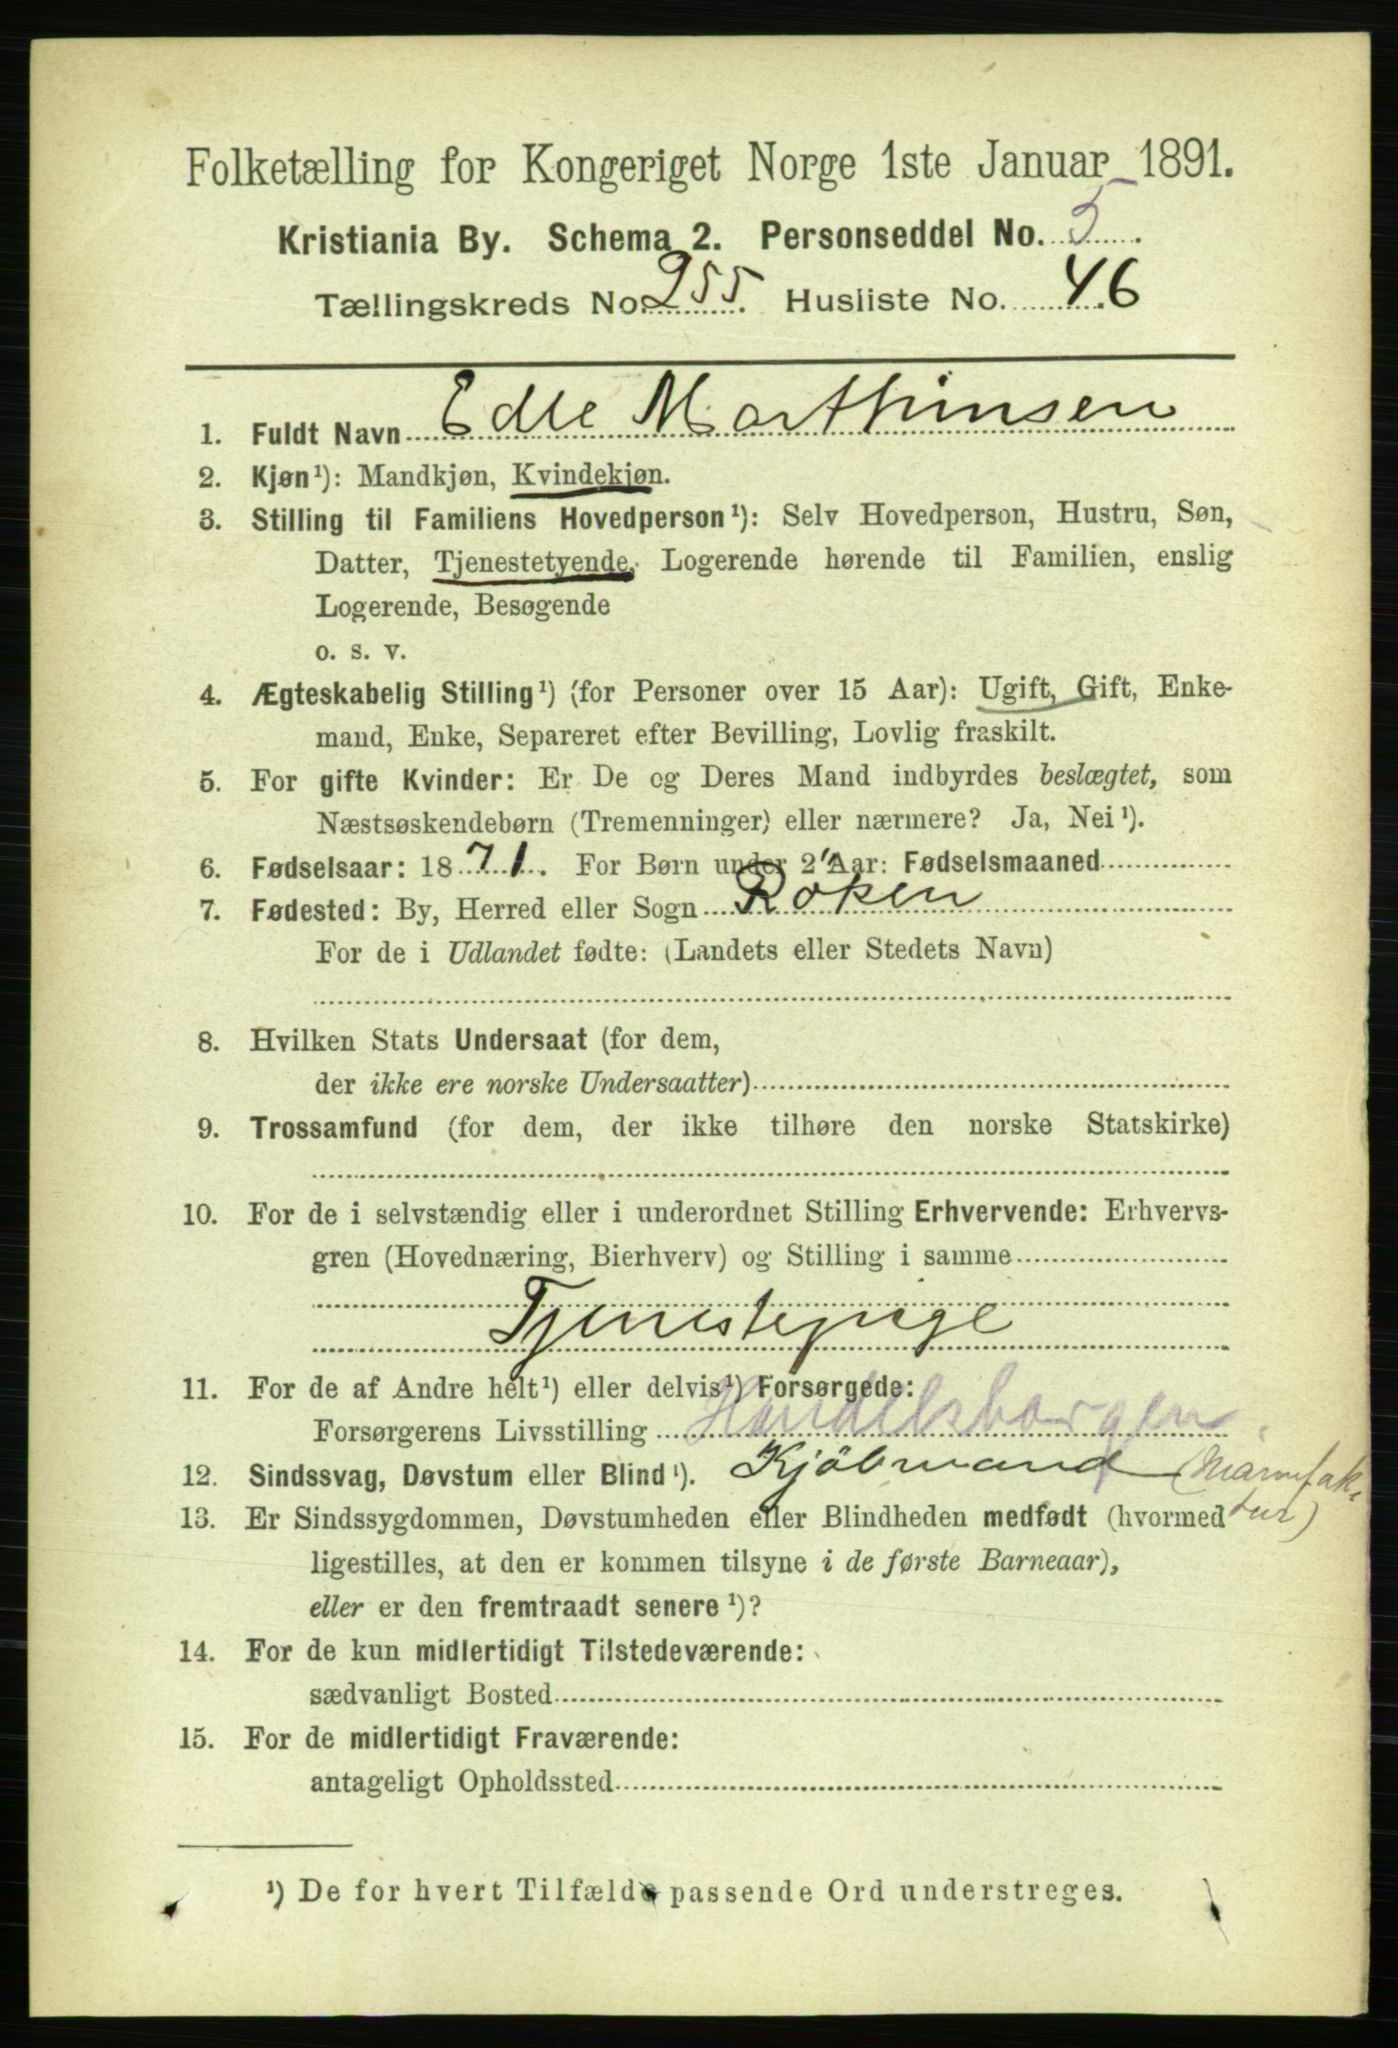 Folketælling for Kongeriget Norge 1ste Januar 1891.
Kristiania By. Schema 2. Personseddel No. 5.
Tællingskreds No. 255. Husliste No. 46
1. Fuldt Navn Edle Marthinsen
2. Kjøn¹): Mandkjøn, Kvindekjøn.
3. Stilling til Familiens Hovedperson¹): Selv Hovedperson, Hustru, Søn,
Datter, Tjenestetyende, Logerende hørende til Familien, enslig
Logerende, Besøgende
o. s. v.
4. Ægteskabelig Stilling¹) (for Personer over 15 Aar): Ugift, Gift, Enke-
mand, Enke, Separeret efter Bevilling, Lovlig fraskilt.
5. For gifte Kvinder: Er De og Deres Mand indbyrdes beslægtet, som
Næstsøskendebørn (Tremenninger) eller nærmere? Ja, Nei¹).
6. Fødselsaar: 1871. For Børn under 2 Aar: Fødselsmaaned
7. Fødested: By, Herred eller Sogn Røken
For de i Udlandet fødte: (Landets eller Stedets Navn)
8. Hvilken Stats Undersaat (for dem,
der ikke ere norske Undersaatter)
9. Trossamfund (for dem, der ikke tilhøre den norske Statskirke)
10. For de i selvstændig eller i underordnet Stilling Erhvervende: Erhvervs-
gren (Hovednæring, Bierhverv) og Stilling i samme
Tjenestepige
11. For de af Andre helt¹) eller delvis¹) Forsørgede:
Forsørgerens Livsstilling Handelsborger
12. Sindssvag, Døvstum eller Blind¹). Kjöbmand (Manufak-
13. Er Sindssygdommen, Døvstumheden eller Blindheden medfødt (hvormed tur)
ligestilles, at den er kommen tilsyne i de første Barneaar),
eller er den fremtraadt senere¹)?
14. For de kun midlertidigt Tilstedeværende:
sædvanligt Bosted
15. For de midlertidigt Fraværende:
antageligt Opholdssted
¹) De for hvert Tilfælde passende Ord understreges.